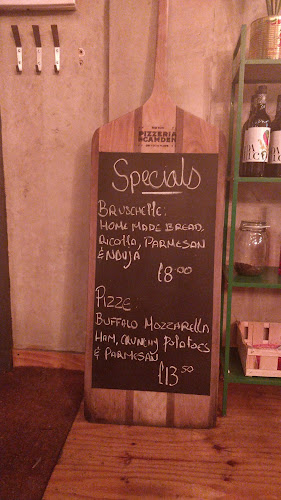 PIZZERIA
CAMDEN
Specials
BRUSCHETTE:
HOME MADE BREAD,
RICOTTA, PARMESAN
& NDUJA
£8.00
PIZZE:
BUFFALO MOZZARELLA
HAM, CRUNCHY POTATOES
& PARMESAN
£13.50